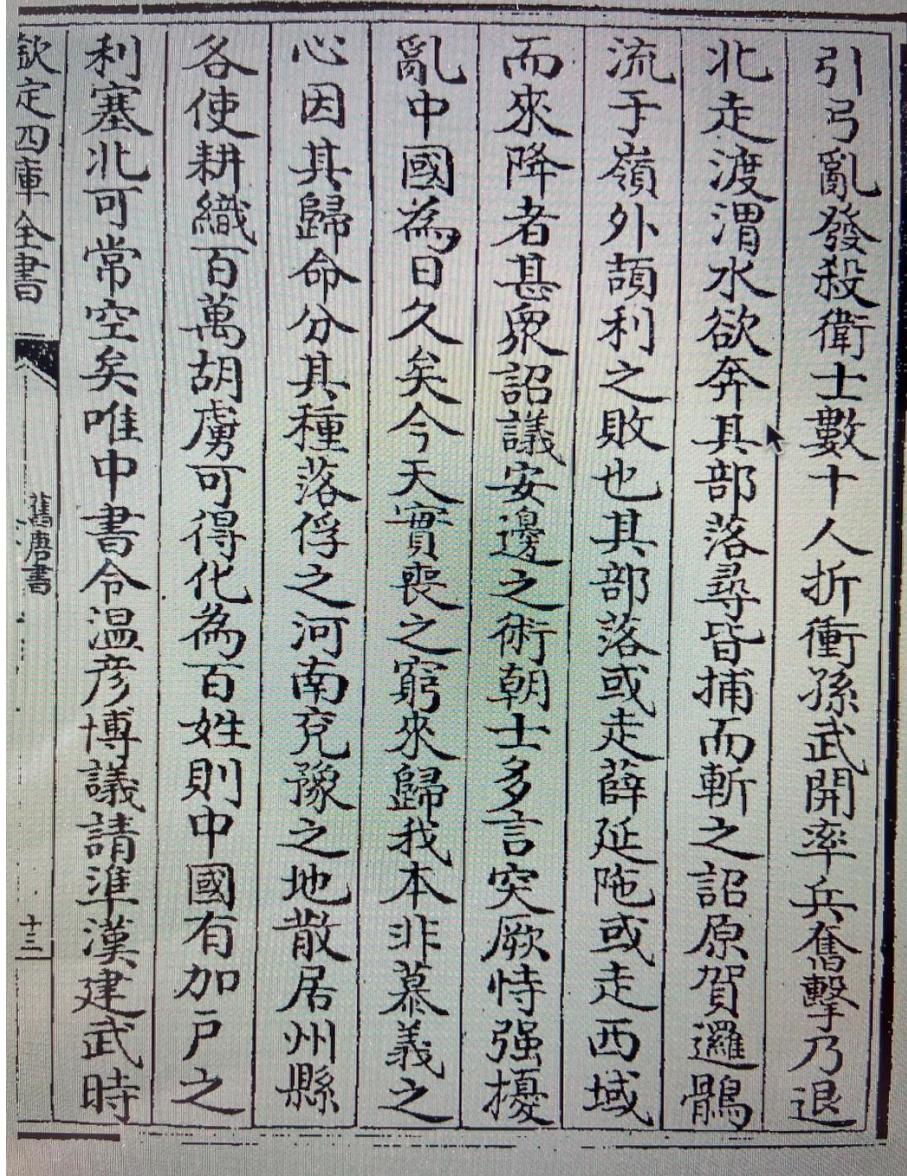 引弓亂發殺衛士數十人折衝孫武開率兵奮擊乃退
北走渡渭水欲奔其部落尋皆捕而斬之詔原賀邏鶻
流于嶺外頡利之敗也其部落或走薛延陁或走西域
而來降者甚衆詔議安邊之術朝士多言突厥恃强擾
亂中國為日久矣今天實喪之窮來歸我本非慕義之
心因其歸命分其種落俘之河南兖豫之地散居州縣
各使耕織百萬胡虜可得化為百姓則中國有加戶之
利塞北可常空矣唯中書令温彦博議請準漢建武時
欽定四庫全書
舊唐書
十三